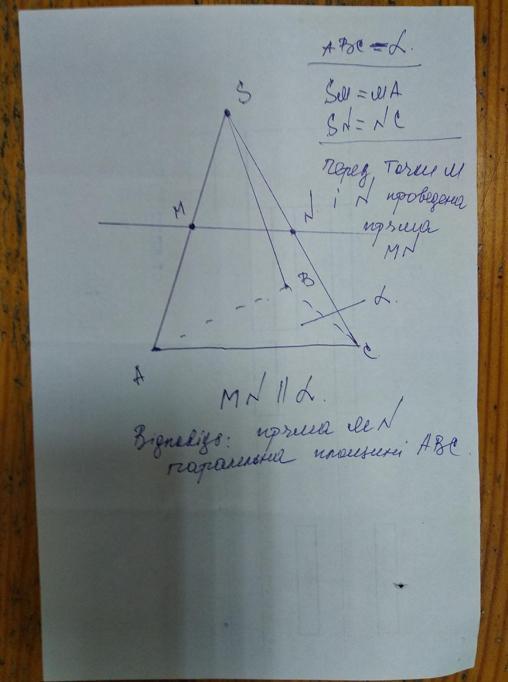 ABC = α.
SM = MA
SN = NC
через точки M
N і N проведена
пряма
MN
S
M
N
B
α.
A
C
MN || α.
Відповідь: пряма MN
паралельна площині ABC.